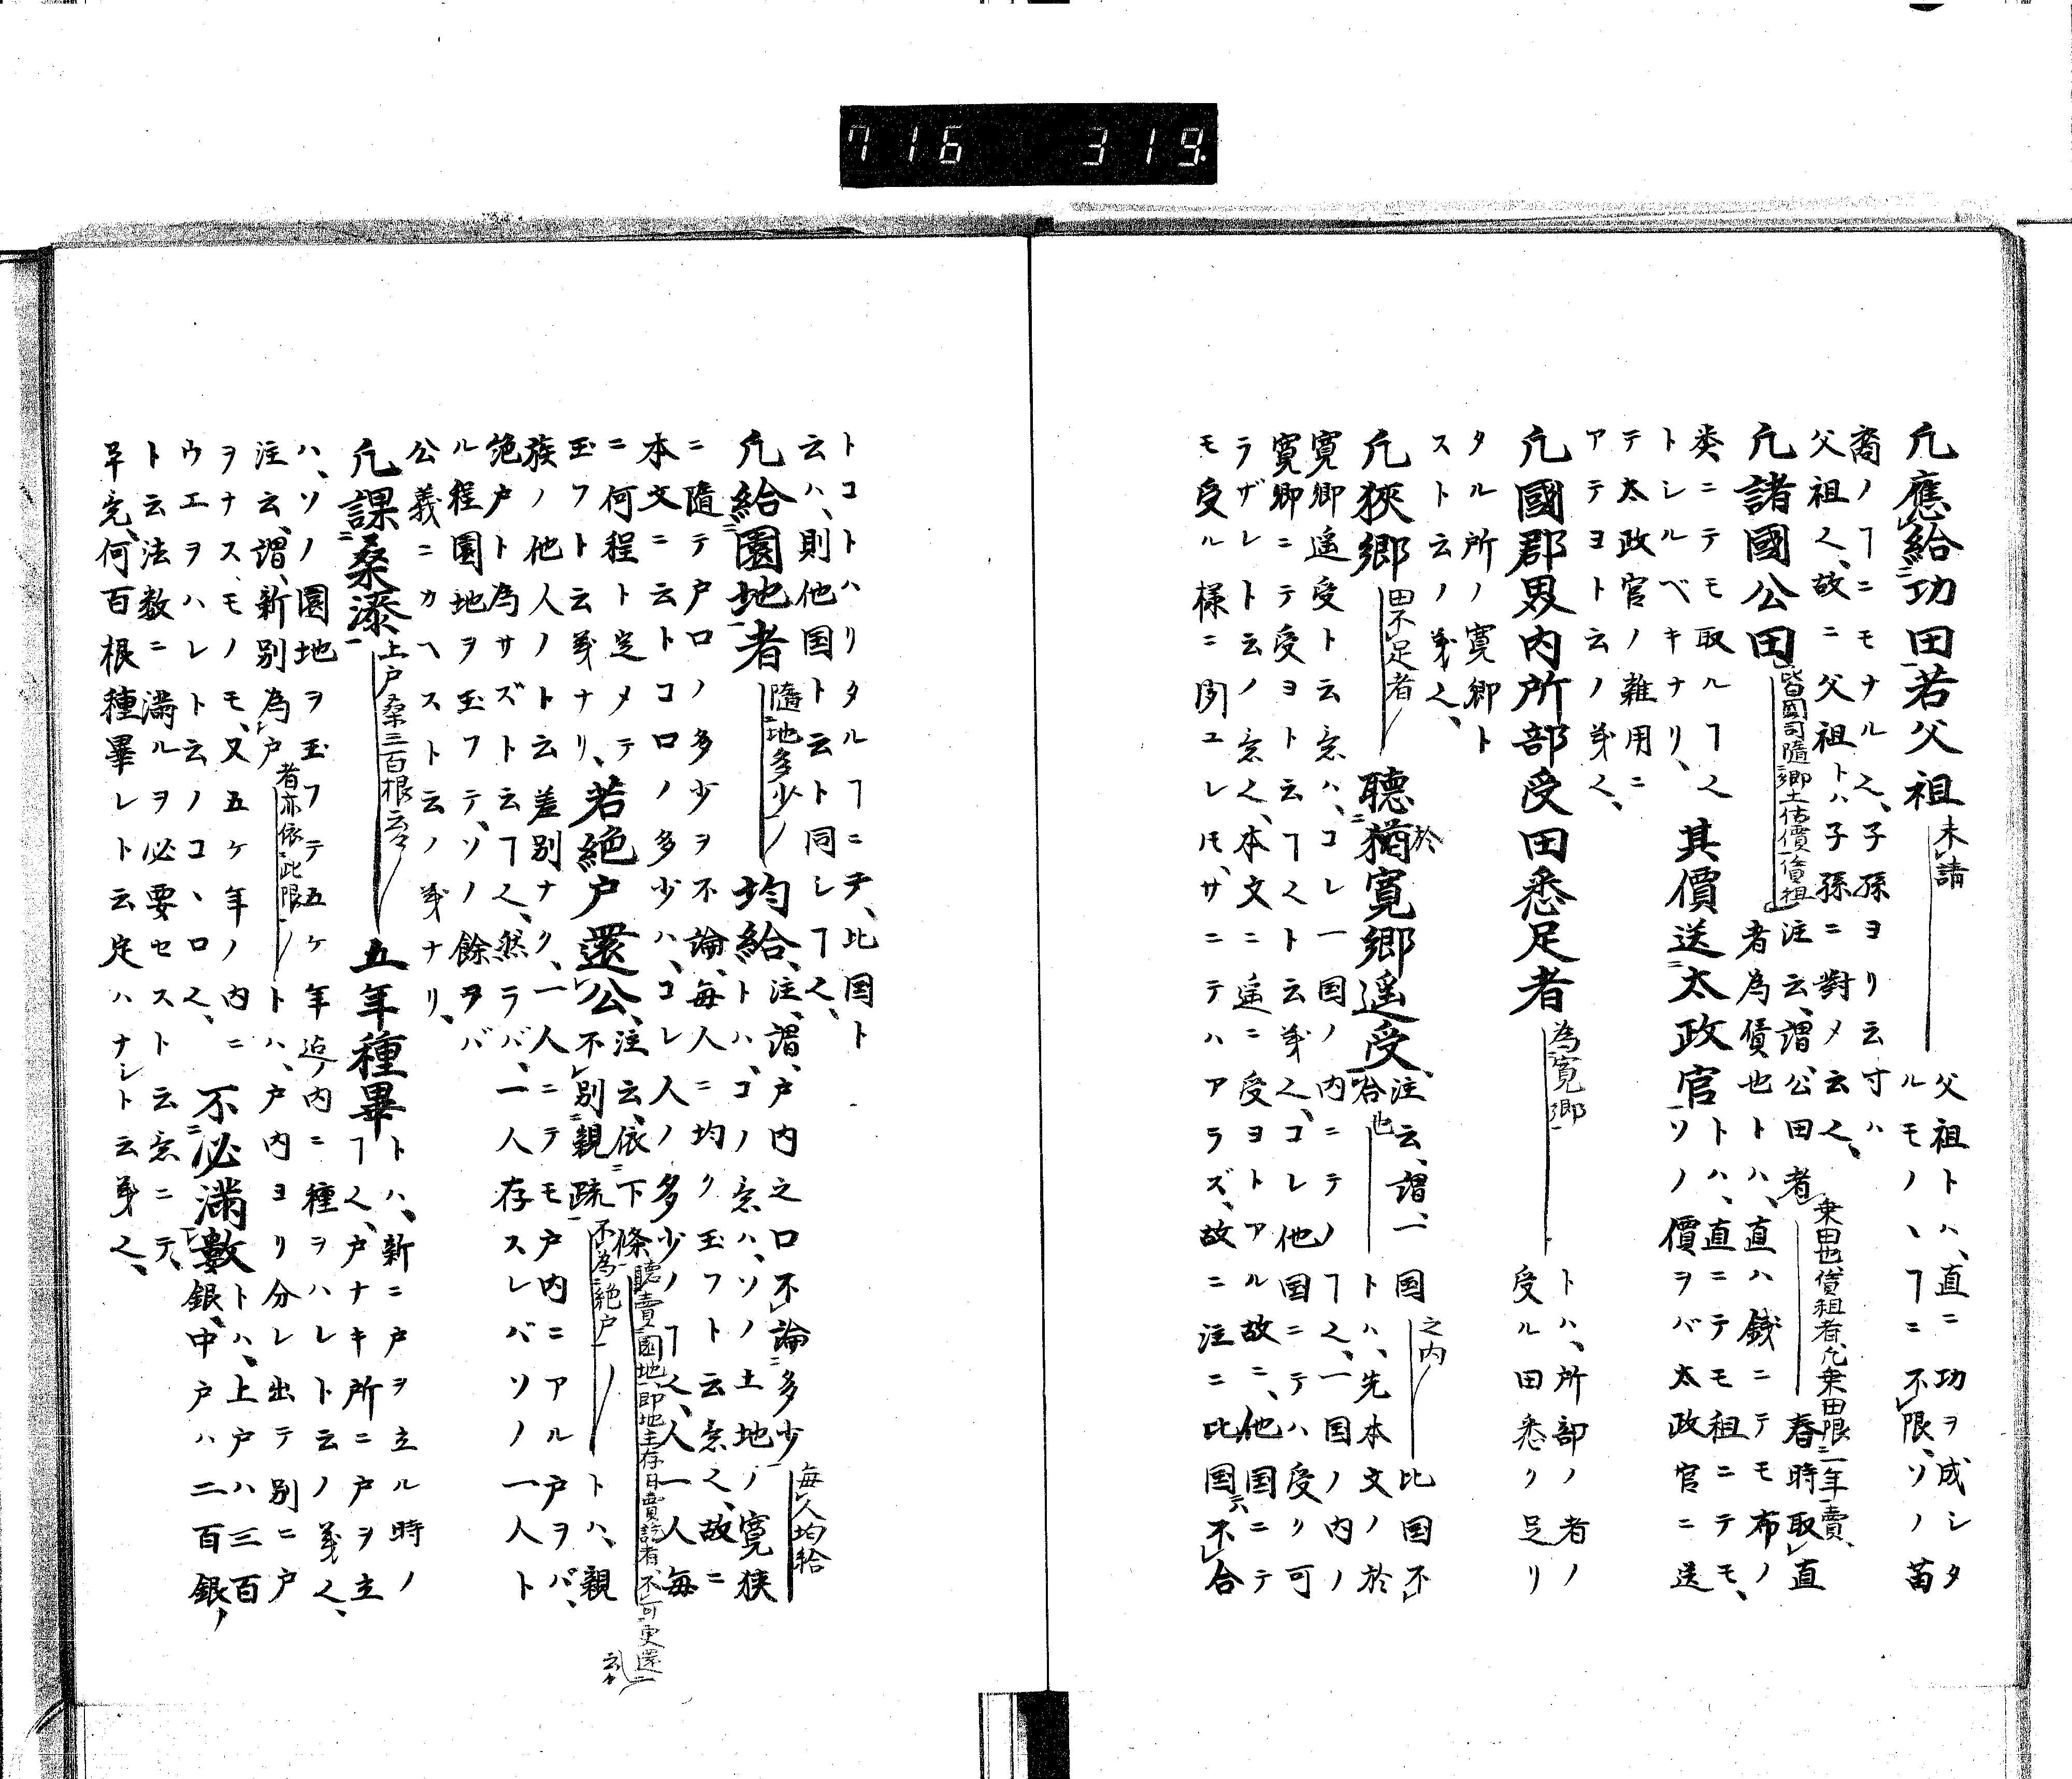 716 319.
凡應給功田若父祖未請父祖トハ、直ニ功ヲ成シタ
ルモノヽヿニ不限、ソノ苗
裔ノヿニモナル也、子孫ヨリ云寸ハ
父祖也、故ニ父祖トハ子孫ニ對メ云也、
凡諸國公田皆國司隨郷土估價賃租注云、謂、公田者乗田也、賃租者、凡乗田限一年賣、春時取直
者為賃也トハ、直ハ銭ニテモ布ノ
類ニテモ取ルヿ也其價送太政官トハ、直ニテモ租ニテモ、
ソノ價ヲバ太政官ニ送
トシルベキナリ、
テ太政官ノ雜用ニ
アテヨト云ノ義也、
凡國郡界内所部受田悉足者為寛郷トハ、所部ノ者ノ
受ル田悉ク足リ
タル所ノ寛郷ト
スト云ノ義也、
凡狹郷田不足者聽於猶寛郷遥受注云、謂、一国之内比国不
合也トハ、先本文ノ於
寛郷遥受ト云意ハ、コレ一国ノ内ニテノヿ也、一国ノ内ノ
寛郷ニテ受ヨト云ヿ也ト云義也、コレ他国ニテハ受リ可
ラザレト云ノ意也、本文ニ遥ニ受ヨトアル故ニ、他国ニテ
モ受ル様ニ聞ユレ𪜈、サニテハアラズ、故ニ注ニ比国ハ不合
トコトハリタルヿニテ、比国ト
云ハ、則他国ト云ト同シヿ也、
凡給園地者隨地多少均給、注、謂、戸内之口不論多少毎人均給
トハ、コノ意ハ、ソノ土地ノ寛狹
ニ隨テ戸口ノ多少ヲ不論、毎人ニ均ク玉フト云意也、故ニ
本文ニ云トコロノ多少ハ、コレ人ノ多少ノヿ也、人一人毎
ニ何程ト定メテ
玉フト云義ナリ、若絶戸還公、注云、依下條聽賣園地即地主存日賣訖者不可更還云々
不別親疏不為絶戸トハ、親
族ノ他人ノト云差別ナク、一人ニテモ戸内ニアル戸ヲバ、
絶戸ト為サズト云ヿ也、然ラバ、一人存スレバソノ一人ト
ル程園地ヲ玉フテ、ソノ餘ヲバ
公義ニカヘスト云ノ義ナリ、
凡課桑漆上戸桑三百根云々五年種畢トハ、新ニ戸ヲ立ル時ノ
ヿ也、戸ナキ所ニ戸ヲ立
ハ、ソノ園地ヲ玉フテ五ヶ年迠ノ内ニ種ヲハレト云ノ義也、
注云、謂、新別為戸者亦依此限トハ、戸内ヨリ分レ出テ別ニ戸
ヲナスモノモ、又五ヶ年ノ内ニ
ウエヲハレト云ノコヽロ也、不必滿數トハ、上戸ハ三百
銀、中戸ハ二百銀ノ
ト云法数ニ滿ルヲ必要セスト云意ニテ、
早竟、何百根種畢レト云定ハナシト云義也、